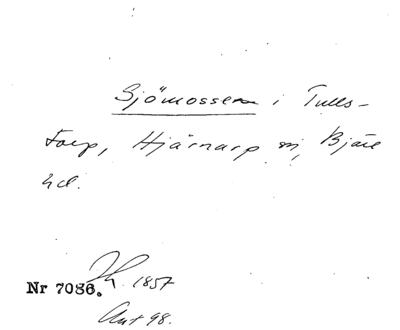 Sjömossen i Tulls-
torp, Hjärnarp sn, Bjäre
hd.
Nr 7086. 1857
Ant 98.